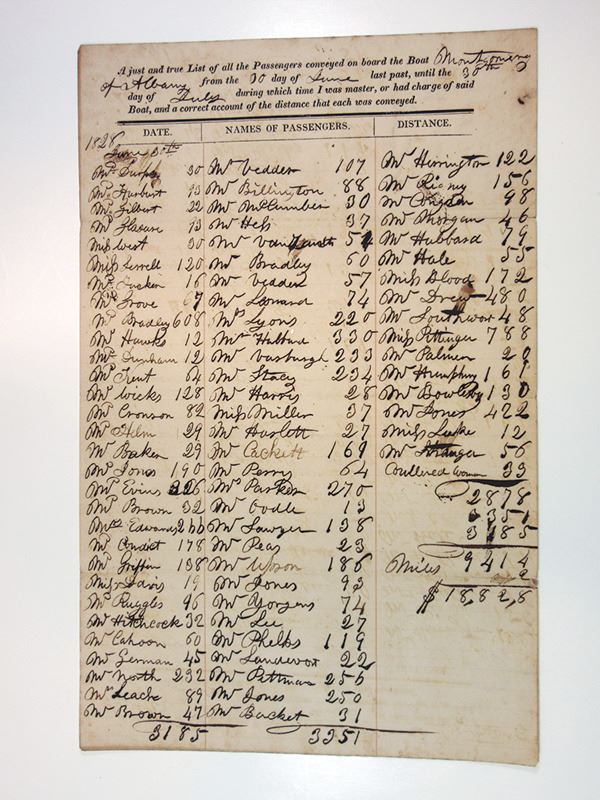 A just and true List of all the Passengers conveyed on board the Boat Montgomery
of Albany from the 30 day of June last past, until the 30th
day of July during which time I was master, or had charge of said
Boat, and a correct account of the distance that each was conveyed.
DATE. NAMES OF PASSENGERS. DISTANCE.
1828
June 30th
30
Mr Hurburt 13
Mr Gilbert 22
13
Miss West 30
Miss Serrell 120
Mr Tucker 16
Mr Grove 67
Mr Bradley 608
Mr Hawks 12
Mr Dunham 12
Mr Trent 64
Mr Wicks 128
Mr Cronson 82
Mr Helm 29
Mr Baker 29
Mr Jones 190
Mr Evins 326
Mr Brown 32
Mrs Edwards 266
Mr Condict 178
Mr Griffin 138
Miss Davis 19
Mr Ruggles 96
Mr Hitchcock 32
Mr Cahoon 60
Mr German 45
Mr North 232
Mr Leach 89
Mr Brown 47
3185
Mr Vedder 107
Mr Billington 88
Mr McCumber 30
Mr Hess 37
Mr 54
Mr Bradley 60
Mr Vedder 57
Mr Leonard 74
Mrs Lyons 220
Mr Hubbard 330
Mr Vosburgh 233
Mr Stacy 234
Mr Harris 28
Miss Miller 37
Mr Haslett 27
Mr Cackett 169
Mr Perry 64
Mr Parker 270
Mr Oodle 13
Mr Sawyer 138
Mr Peas 23
Mr Upson 186
Mr Jones 93
Mr Yorgens 74
Mr Lee 27
Mr Phelps 119
Mr 22
Mr Pittman 256
Mr Jones 250
Mr Backet 31
3351
Mr Hirrington 122
Mr Rigney 156
Mr Congden 98
Mr Morgan 46
Mr Hubbard 79
Mr Hale 55
Miss Blood 172
Mr Drew 480
Mr Southwort 48
Miss Pittinger 788
Mr Palmer 20
Mr Humphry 161
Mr Bowlsby 130
Mr Jones 422
Miss Luke 12
Mr Stranger 56
Coullered woman 33
2878
3351
3185
Miles 9414
2
$ 18,82,8